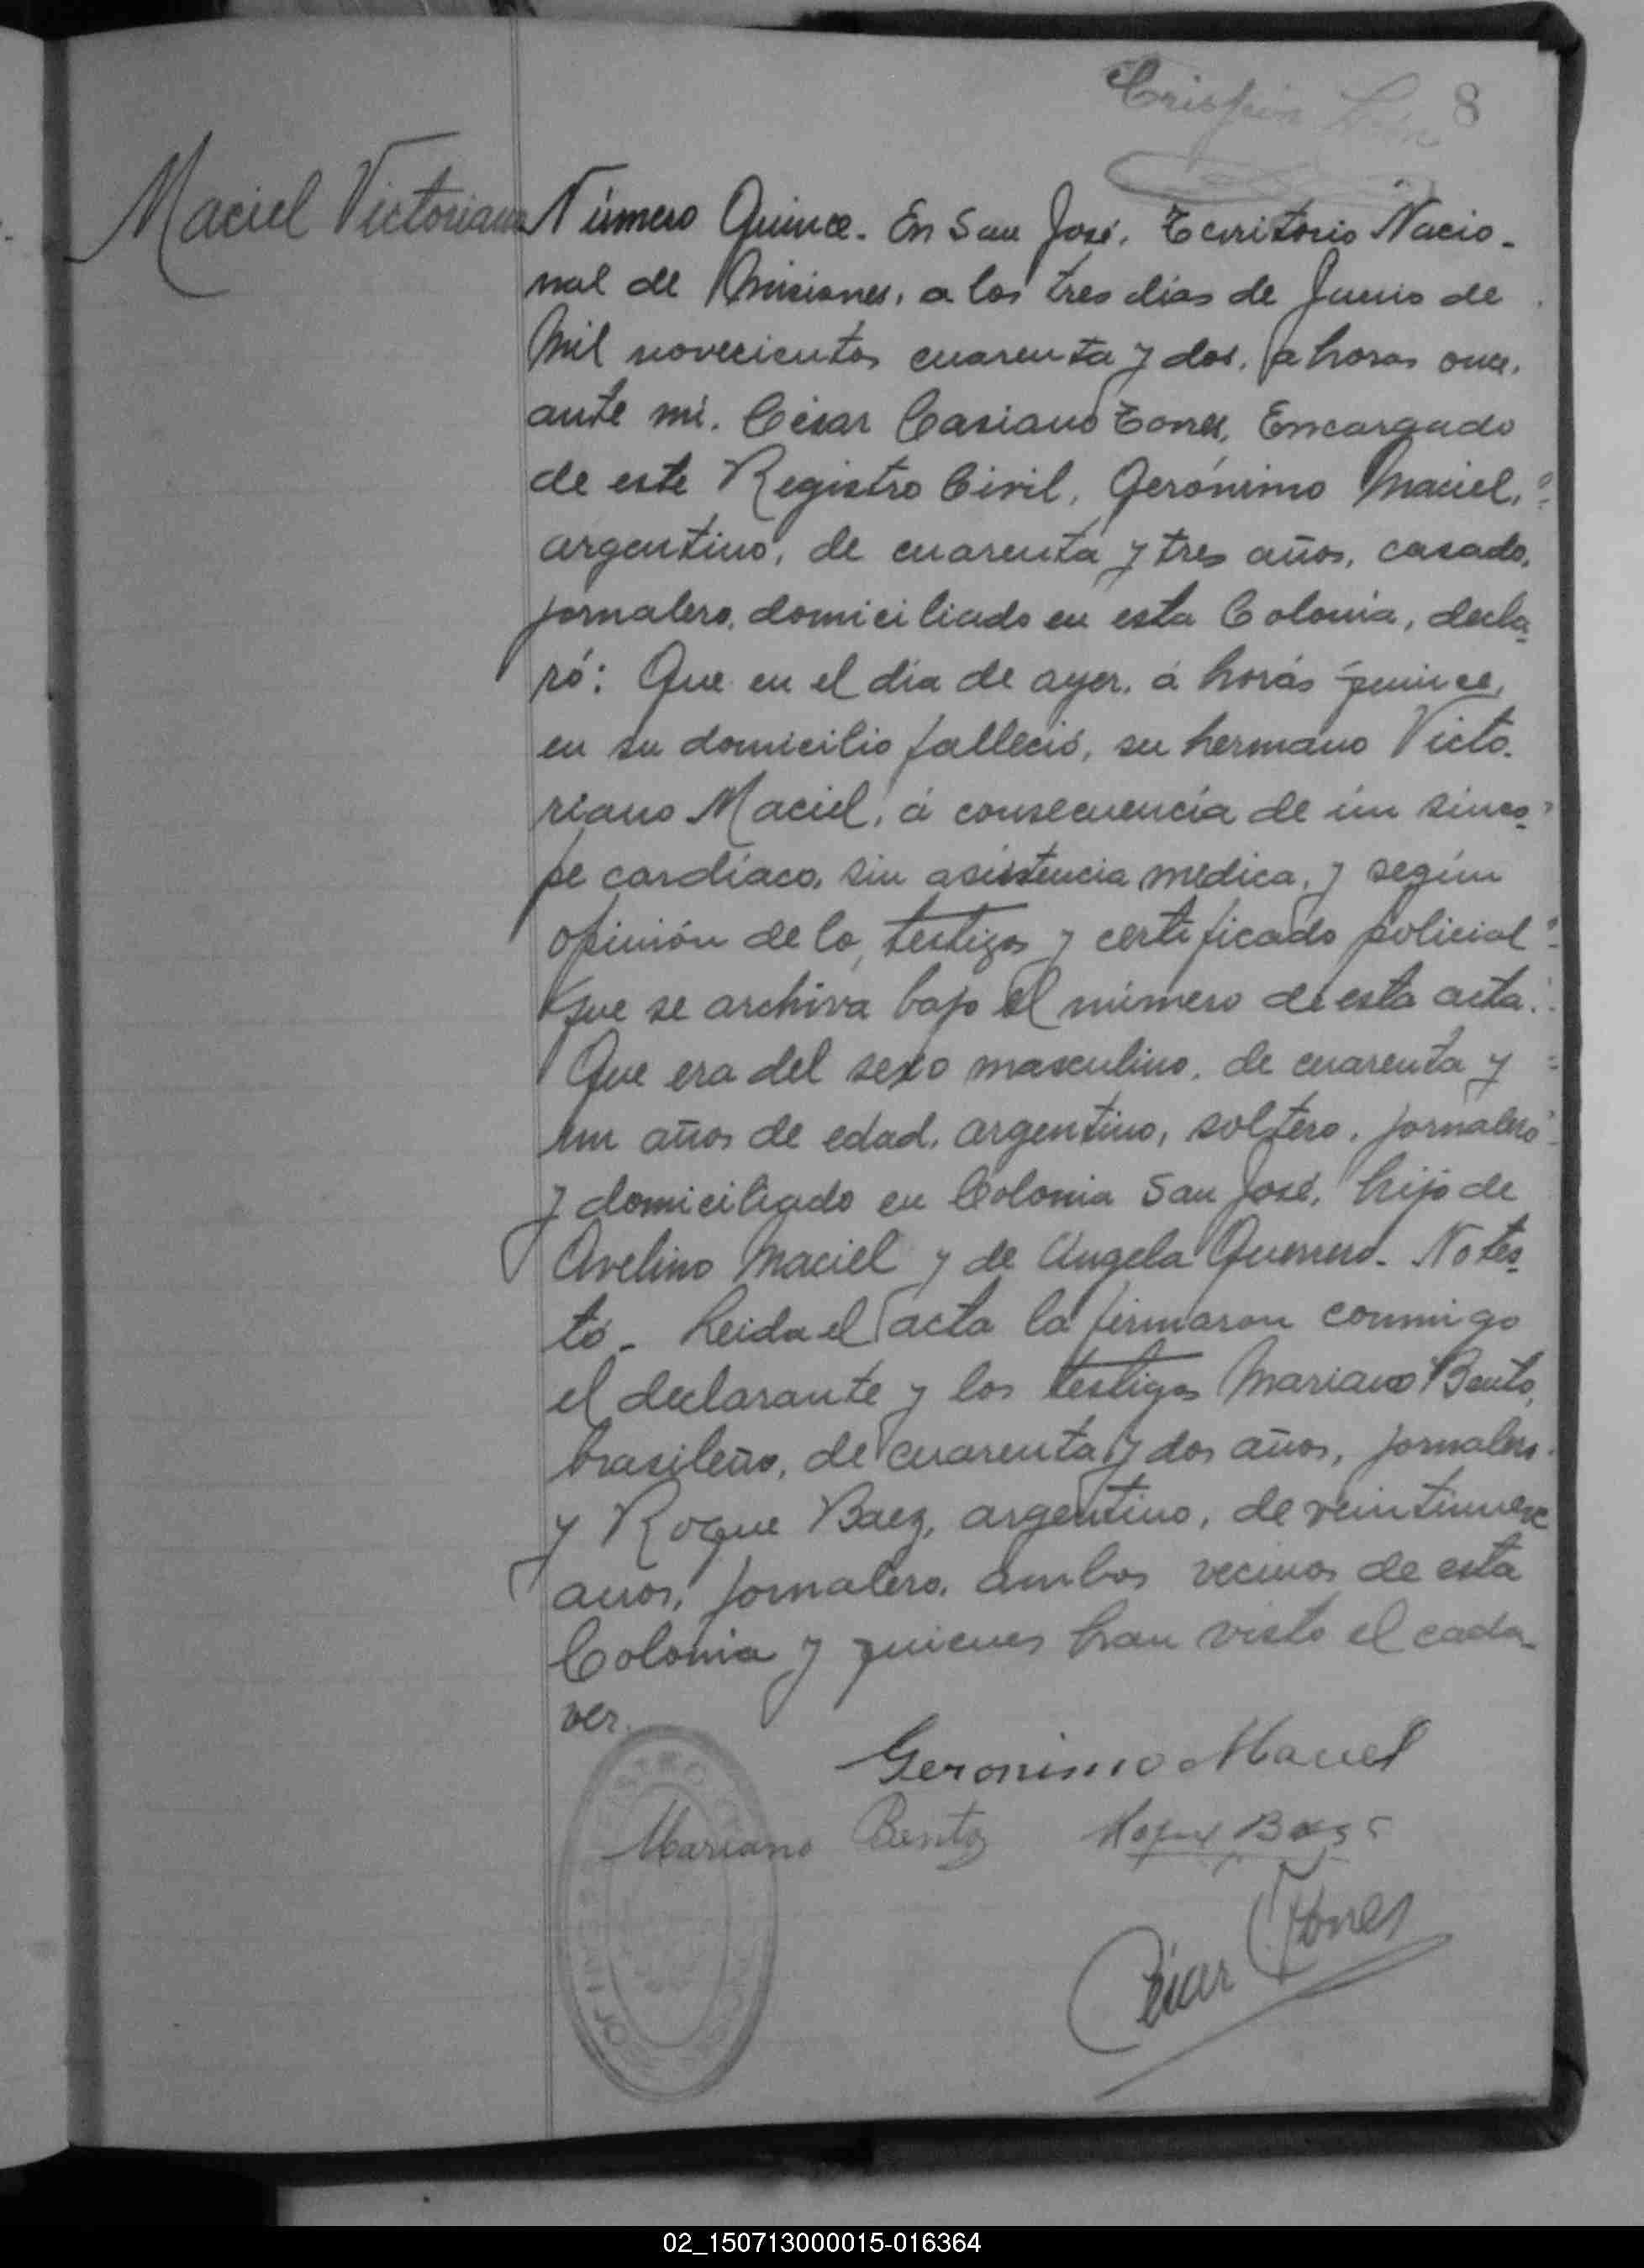 Crispin 8
Maciel Victoriano
Número Quince. En San José, Territorio Nacio-
nal de Misiones, a los tres dias de Junio de
Mil novecientos cuarenta y dos, a horas once,
ante mi, César Casiano Torres, Encargado
de este Registro Civil, Gerónimo Maciel,
argentino, de cuarenta y tres años, casado,
jornalero, domiciliado en esta Colonia, decla-
ró: Que en el día de ayer, á horas quince,
en su domicilio falleció, su hermano Victo-
riano Maciel, á consecuencia de un sinco-
pe cardíaco, sin asistencia medica, y según
opinión de los testigos y certificado policial
que se archiva bajo el número de esta acta.
Que era del sexo masculino, de cuarenta y
un años de edad, argentino, soltero, jornalero
y domiciliado en Colonia San José, hijo de
Avelino Maciel y de Angela Guerrero. No tes-
tó. Leida el acta la firmaron conmigo
el declarante y los testigos Mariano Bento,
brasileño, de cuarenta y dos años, jornalero
y Roque Baez, argentino, de veintinueve
años, jornalero, ambos vecinos de esta
Colonia y quienes han visto el cada-
ver.
Geronimo Maciel
Mariano Bento Roque Baez
César Torres
02_150713000015-016364